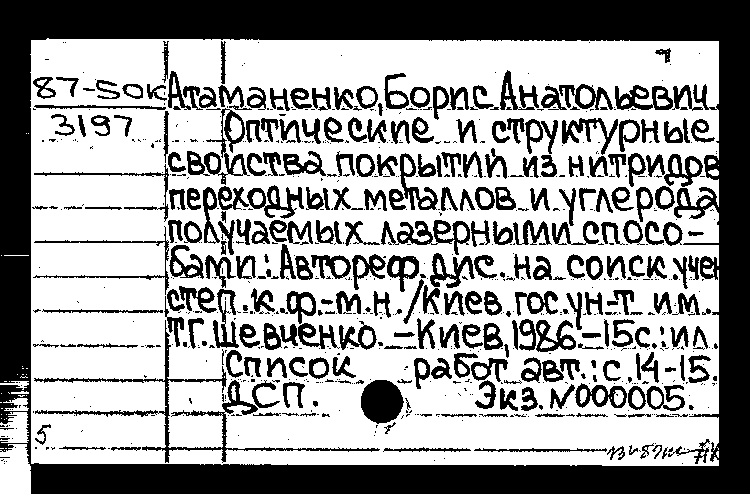 87-50к Атаманенко, Борис Анатольевич.
3197 Оптические и структурные
свойства покрытий из нитридов
переходных металлов и углерода
получаемых лазерными спосо-
бами: Автореф. дис. на соиск. учен
степ. к. ф.-м. н. / Киев. гос. ун-т им.
Т.Г. Шевченко. - Киев, 1986. - 15с.: ил.
Список работ авт.: с. 14-15.
ДСП. Экз. N000005.
5